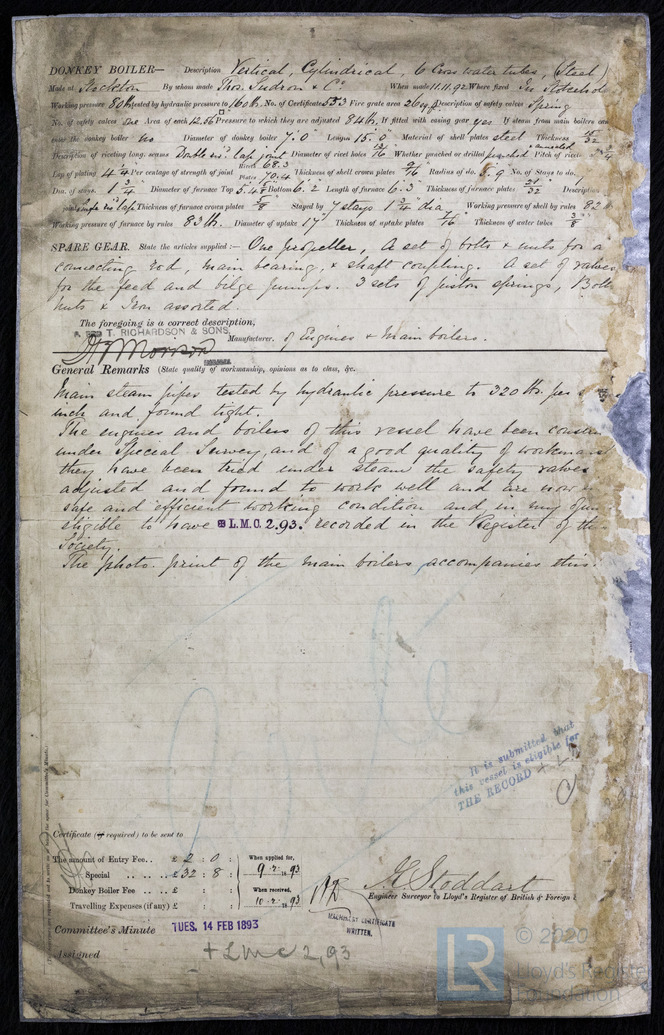 DONKEY BOILER— Description Vertical, Cylindrical, 6 Cross water tubes, (Steel)
Made at Stockton By whom made Thos. Sudron & Co When made 11.11.92 Where fixed In Stokehold
Working pressure 80 lbs tested by hydraulic pressure to 160 lbs. No. of Certificate 533 Fire grate area 26 sq ft Description of safety valves Spring
No. of safety valves one Area of each 12.56 Pressure to which they are adjusted 84 lbs. If fitted with easing gear yes If steam from main boilers can
enter the donkey boiler no Diameter of donkey boiler 7.0 Length 15.0 Material of shell plates steel Thickness 15/32
Description of riveting long. seams Double riv. lap joint Diameter of rivet holes 13/16 Whether punched or drilled punched Pitch of rivets
Lap of plating 4 1/4 Per centage of strength of joint Rivets 68.3 Plates 70.4 Thickness of shell crown plates 9/16 Radius of do. 5.9 No. of Stays to do.
Dia. of stays. 1 3/4 Diameter of furnace Top 5.4 Bottom 6.2 Length of furnace 6.3 Thickness of furnace plates 21/32 Description
Thickness of furnace crown plates 5/8 Stayed by 7 stays 1 3/4 dia Working pressure of shell by rules 82
Working pressure of furnace by rules 83 lb. Diameter of uptake 17 Thickness of uptake plates 7/16 Thickness of water tubes 3/8
SPARE GEAR. State the articles supplied:— One propeller, A set of bolts & nuts for a
connecting rod, main bearing, & shaft coupling. A set of valves
for the feed and bilge pumps. 3 sets of piston springs, Bolts
nuts & Iron assorted.
The foregoing is a correct description,
T. RICHARDSON & SONS, Manufacturer. of Engines & Main boilers.
Morrison
General Remarks (State quality of workmanship, opinions as to class, &c.
Main steam pipes tested by hydraulic pressure to 320 lbs. per
inch and found tight.
The engines and boilers of this vessel have been constru
under Special Survey, and of a good quality of workmans
they have been tried under steam the safety valves
adjusted and found to work well and are now in
safe and efficient working condition and in my
eligible to have ✠L.M.C. 2.93. recorded in the register of the
Society.
The photo. print of the main boilers, accompanies this.
It is submitted that
this vessel is eligible for
THE RECORD
Certificate (if required) to be sent to
The amount of Entry Fee.. £ 2 : 0 : When applied for,
Special .. .. .. .. £ 32 : 8 : 9.2.1893
Donkey Boiler Fee .. £ : : When received,
Travelling Expenses (if any) £ : : 10.2.1893
H. Stoddart
Engineer Surveyor to Lloyd's Register of British & Foreign
MACHINERY CERTIFICATE
WRITTEN.
Committee's Minute TUES. 14 FEB 1893
Assigned + LMC 2,93
LR © 2020
Lloyd's Register
Foundation